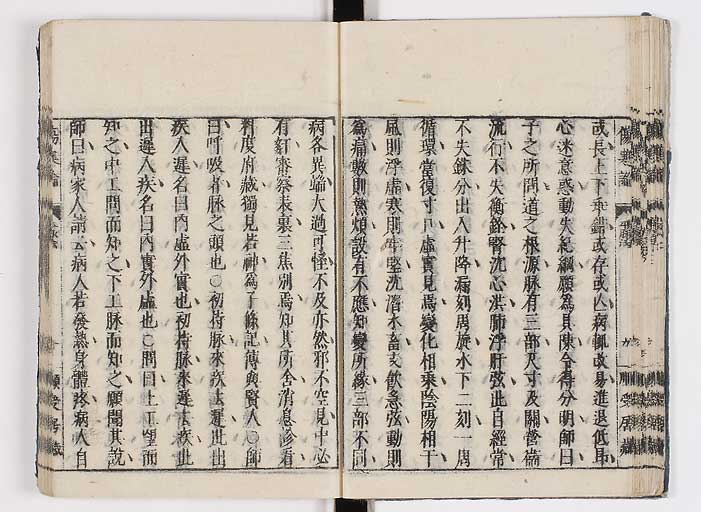 或長上下乖錯或存或亡病輒改易進退低昂
心迷意惑動失紀綱願為具陳令得分明師曰
子之所問道之根源脉有三部尺寸及關營衛
流行不失衡銓腎沈心洪肺浮肝弦此自經常
不失銖分出入升降漏刻周旋水下二刻一周
循環當復寸口虛實見焉變化相乘陰陽相干
風則浮虛寒則牢堅沈潛水畜支飲急弦動則
為痛數則熱煩設有不應知變所緣三部不同
病各異端大過可怪不及亦然邪不空見中必
有奸審察表裏三焦別焉知其所舍消息診看
料度府藏獨見若神為子條記傳與賢人○師
曰呼吸者脉之頭也○初持脉來疾去遲此出
疾入遲名曰內虛外實也初持脉來遲去疾此
出遲入疾名曰內實外虛也○問曰上工望而
知之中工問而知之下工脉而知之願聞其說
師曰病家人請云病人若發熱身體疼病人自